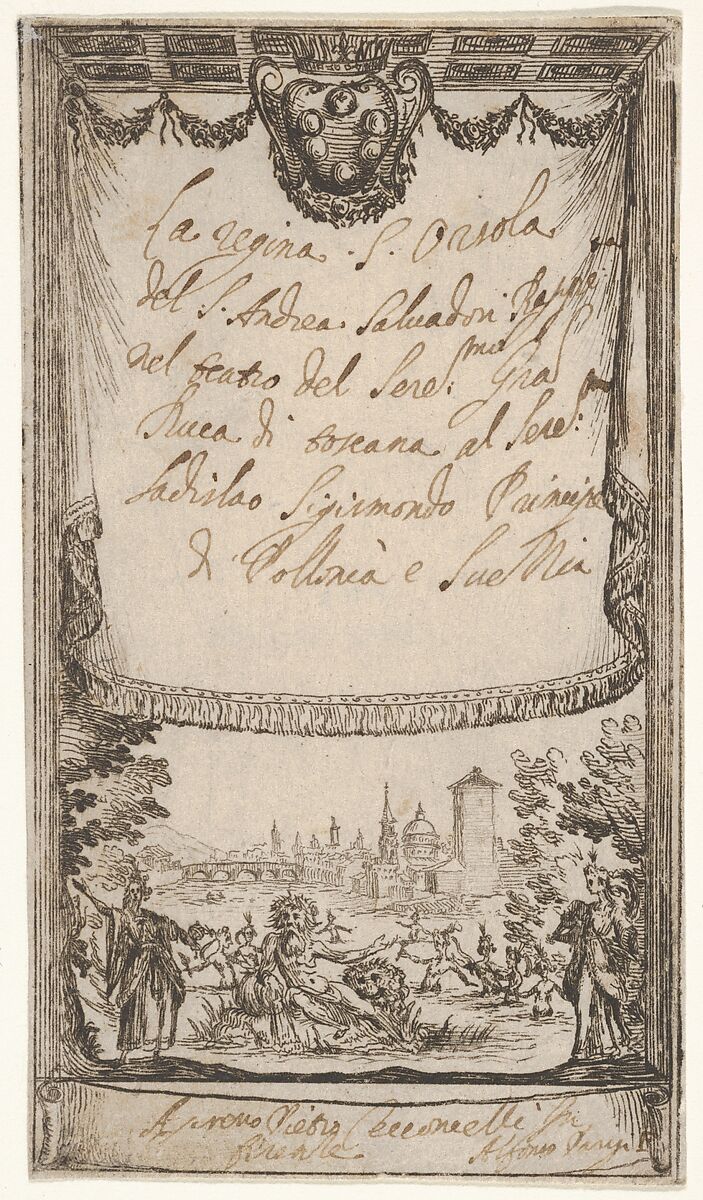 La regina S. Orsola
del S. Andrea Salvadori Rapp.
nel teatro del Sere.mo Gra
Duca di toscana al Sere.mo
Ladislao Sigismondo Principe
di Pollonia e Suethia
Apresso Pietro Cecconcelli In
firenze
Alfonso Parigi F